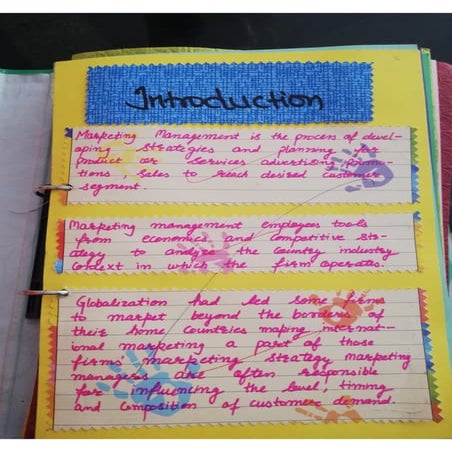 Introduction
Marketing Management is the process of devel-
oping strategies and planning for
product or services advertising, promo-
tions, sales to reach desired customer
segment.
Marketing management employees tools
from economics and competitive stra-
tegy to analyze the country industry
context in which the firm operates.
Globalization had led some firms
to market beyond the borders of
their home countries making internat-
ional marketing a part of those
firms' marketing strategy marketing
managers are often responsible
for influencing the level, timing
and composition of customer demand.